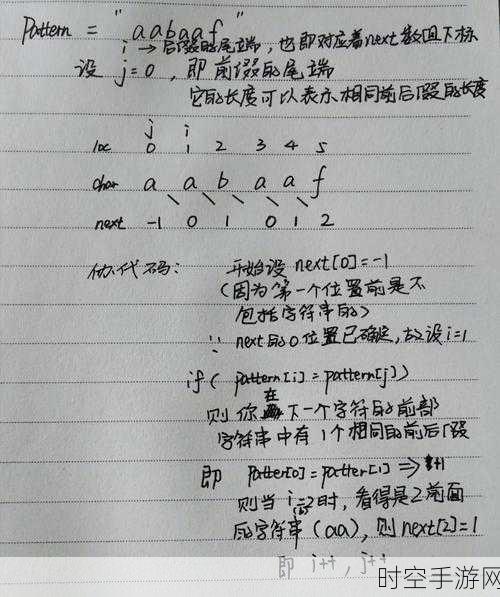 Pattern = "aabaaf"
i → 后缀的尾端，也即对应着next数组下标
设 j=0，即前缀的尾端
它的长度可以表示相同前后缀的长度
j i
loc 0 1 2 3 4 5
char a a b a a f
next -1 0 1 0 1 2
伪代码： 开始设 next[0]=-1
(因为第一个位置前是不
包括字符串的)
∵ next的0位置已确定，故设i=1
if( pattern[i]=pattern[j])
则你在下一个字符的前部
字符串中有1个相同的前后缀
即 patter[0]=patter[1] =>
则当 i=2时，看得是2前面
的字符串(aa)，则next[2]=1
即 i++, j++
时空手游网